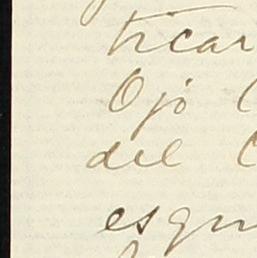 ticar
Ojo
del
esqu